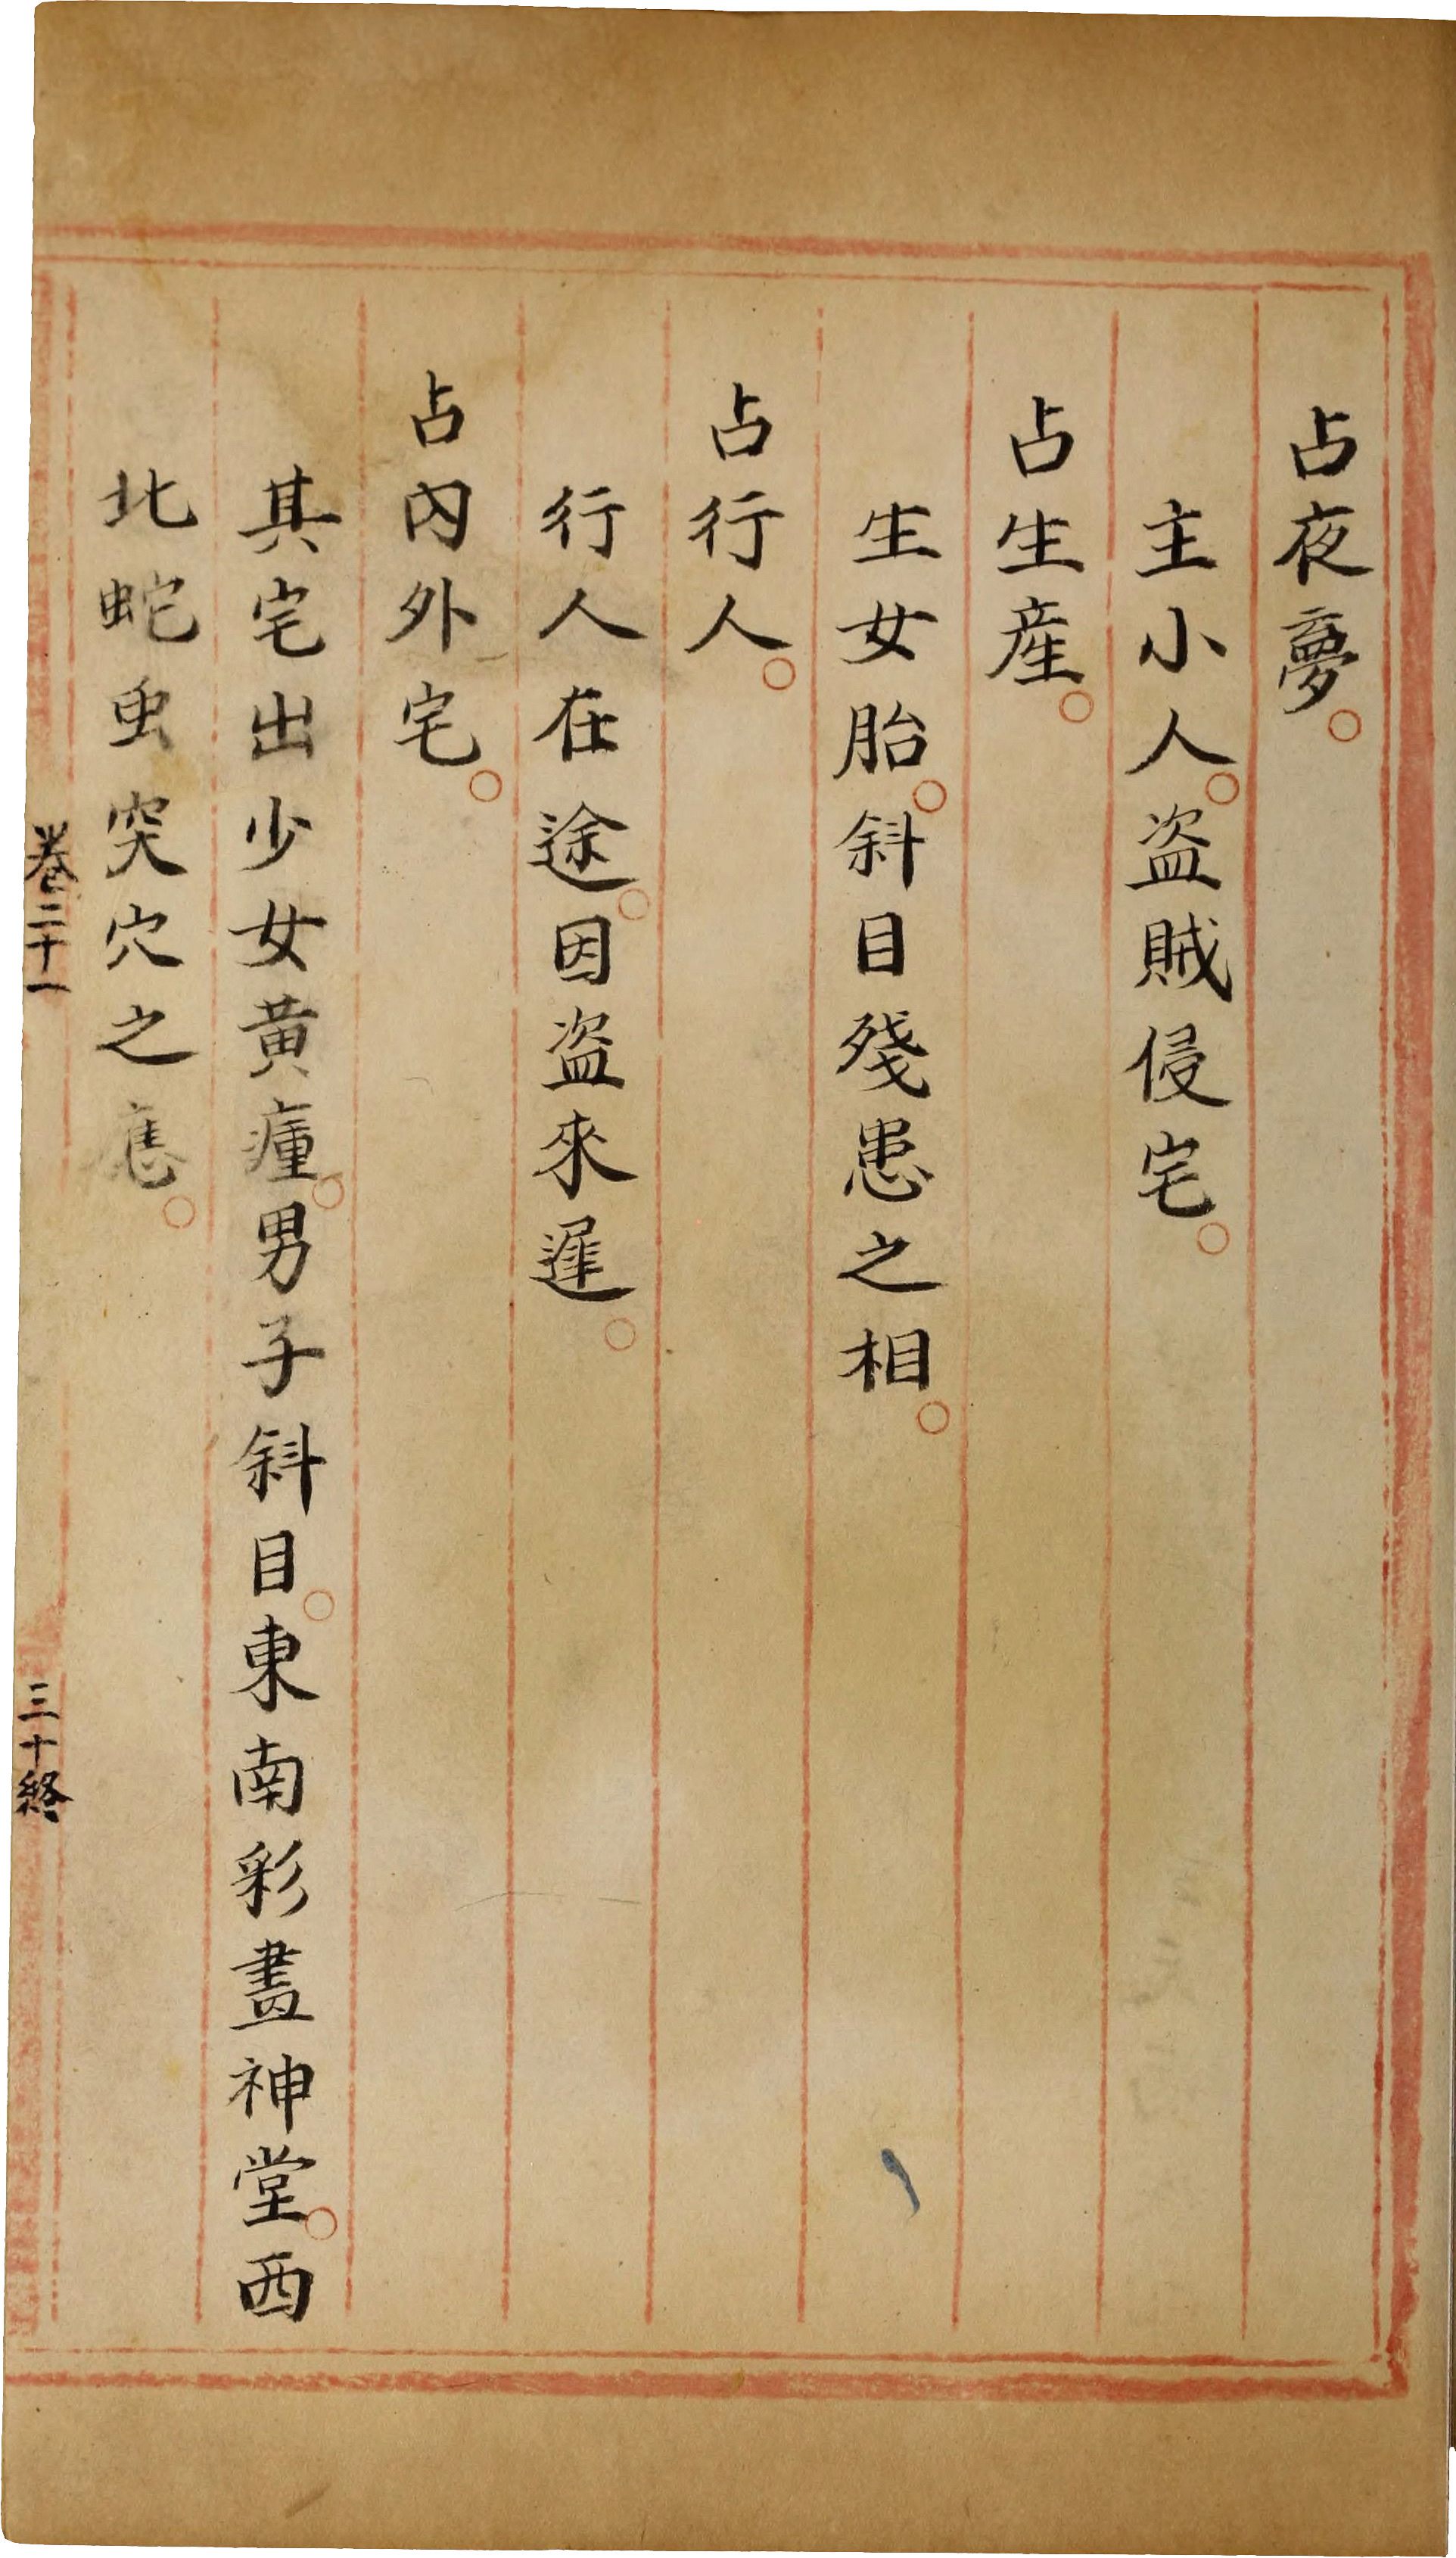 占夜夢。
主小人。盗賊侵宅。
占生產。
生女胎。斜目殘患之相。
占行人。
行人在途。因盗來遲。
占內外宅。
其宅出少女黃瘇。男子斜目。東南彩畫神堂。西
北蛇虫突穴之應。
卷二十一
三十終